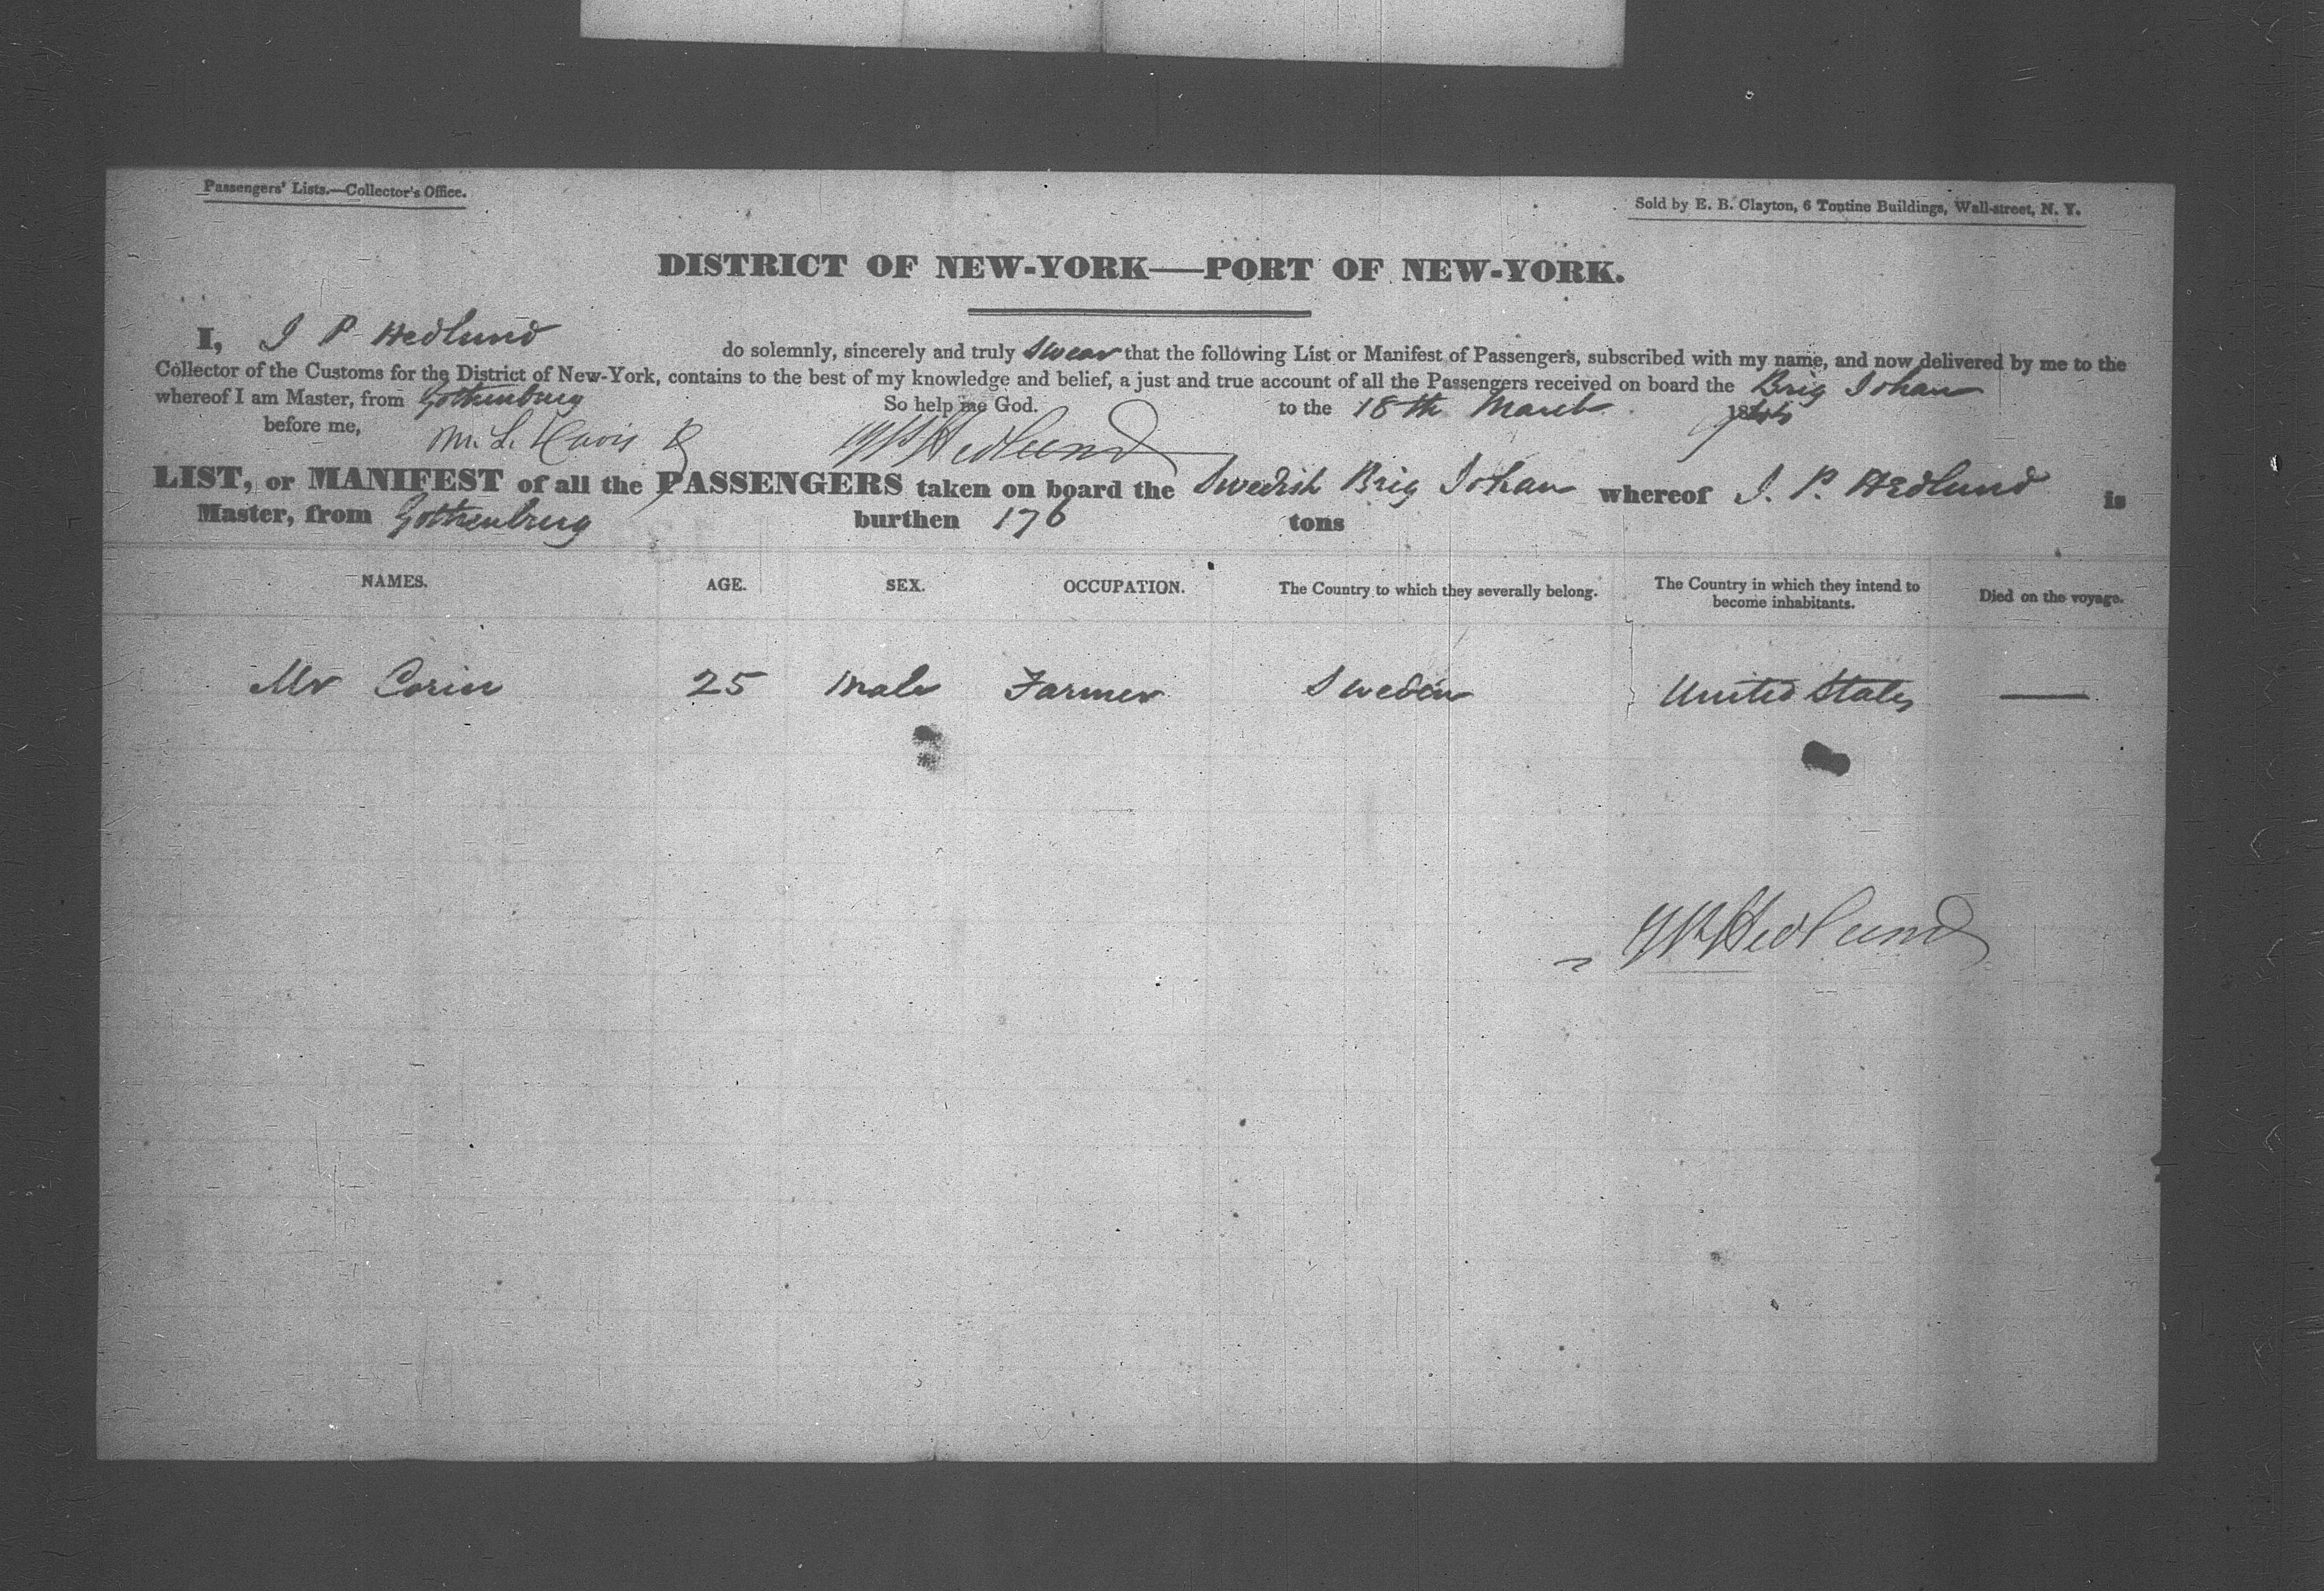 Passengers' Lists.—Collector's Office.
Sold by E. B. Clayton, 6 Tontine Buildings, Wall-street, N. Y.
DISTRICT OF NEW-YORK—PORT OF NEW-YORK.
I, J P Hedlund do solemnly, sincerely and truly swear that the following List or Manifest of Passengers, subscribed with my name, and now delivered by me to the
Collector of the Customs for the District of New-York, contains to the best of my knowledge and belief, a just and true account of all the Passengers received on board the Brig Johan
whereof I am Master, from Gothenburg So help me God. to the 18th March
before me, M. L. Davis J P Hedlund
LIST, or MANIFEST of all the PASSENGERS taken on board the Swedish Brig Johan whereof J. P. Hedlund is
Master, from Gothenburg burthen 176 tons
NAMES. AGE. SEX. OCCUPATION. The Country to which they severally belong. The Country in which they intend to become inhabitants. Died on the voyage.
Mr Corin 25 Male Farmer Sweden United States —
J P Hedlund